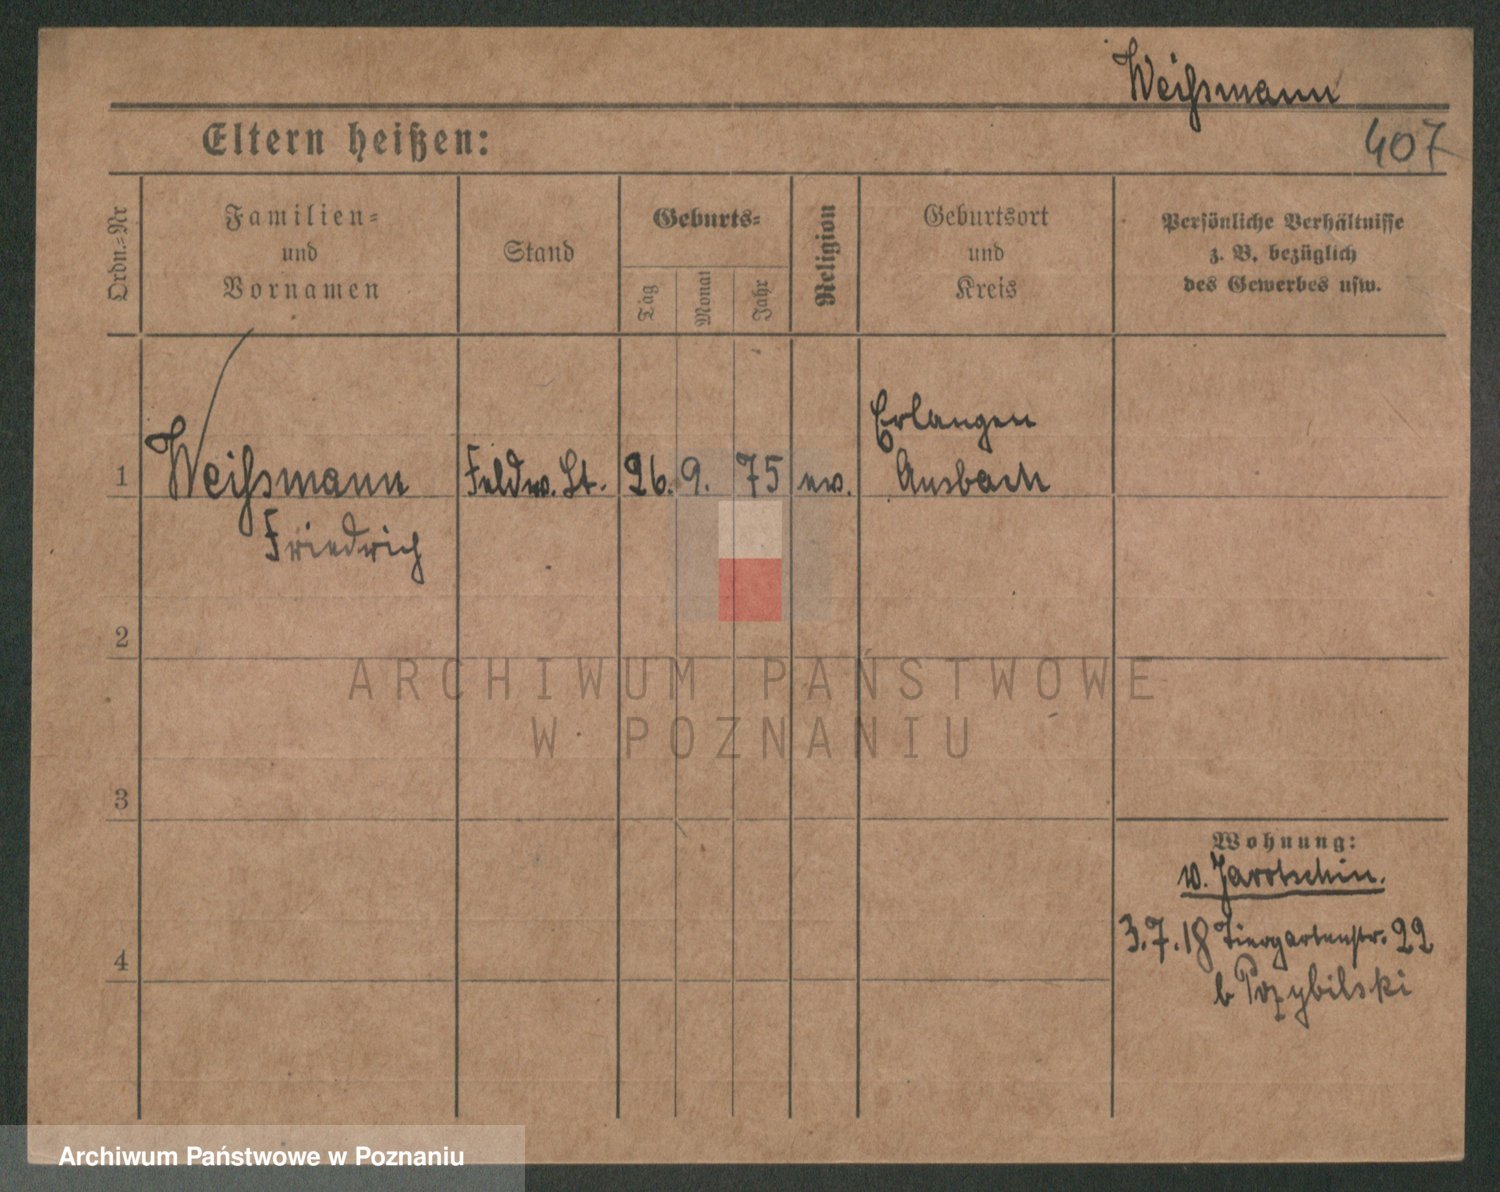 Weißmann
Eltern heißen:
407
Ordn.=Nr
Familien=
und
Vornamen
Stand
Geburts=
Tag
Monat
Jahr
Religion
Geburtsort
und
Kreis
Persönliche Verhältnisse
z. B. bezüglich
des Gewerbes usw.
1
Weißmann
Friedrich
Feldw. Lt.
26. 9. 75
ev.
Erlangen
Ansbach
2
3
4
Wohnung:
v. Jarotschin.
3.7.18 Tiergartenstr. 22
b Przybilski
ARCHIWUM PAŃSTWOWE
W POZNANIU
Archiwum Państwowe w Poznaniu